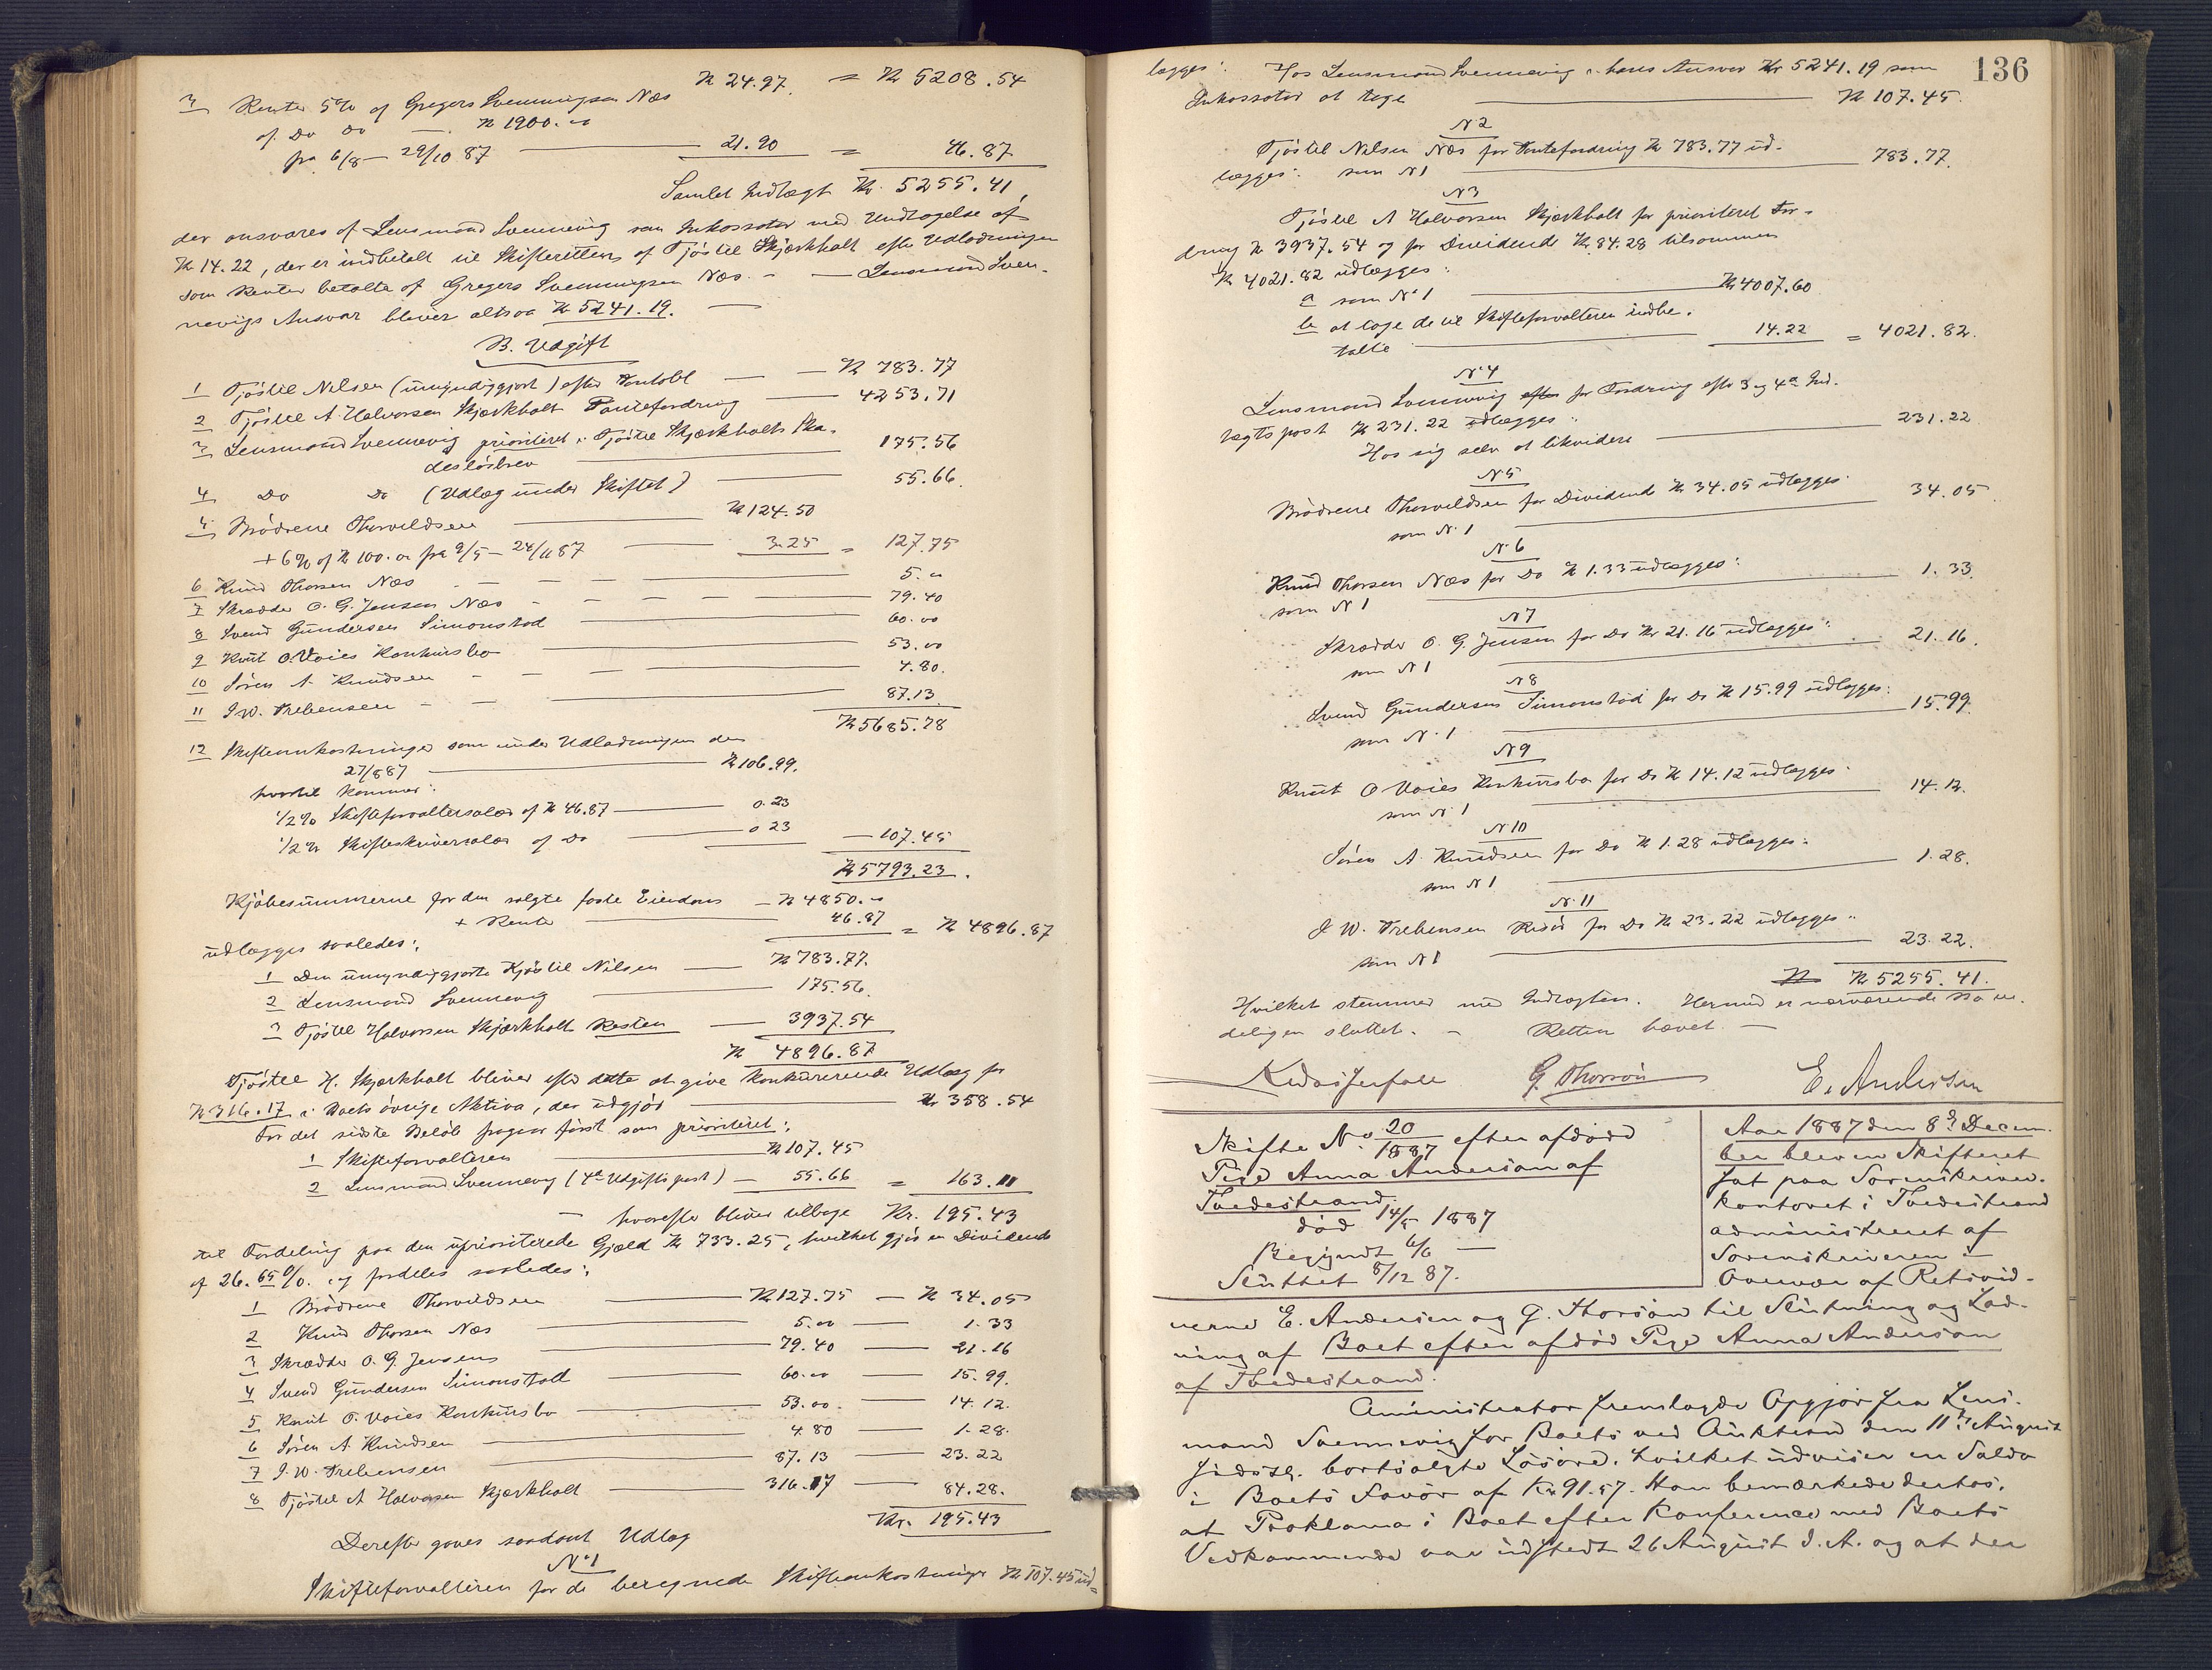 Kr 24.97 = Kr 5208.54
3 Renter 5% af Gregers Svenningsen Næs
af Do Do — Kr 1900.00
fra 6/8 — 29/10 87 — 21.90 = 46.87
Samlet Indtægt Kr. 5255.41,
der ansvares af Lensmand Svennevig som Inkassator med Undtagelse af
Kr 14.22, der er indbetalt til Skifteretten af Tjöstel Skjærkholt efter Udlodningen
som Renter betalte af Gregers Svenningsen Næs. — Lensmand Sven-
nevigs Ansvar bliver altsaa Kr 5241.19. —
B. Udgift
1 Tjöstel Nilsen (umyndiggjort) efter Pantobl — Kr 783.77
2 Tjöstel A. Halvorsen Skjærkholt Pantefordring — 4253.71
3 Lensmand Svennevig prioriteret i Tjöstel Skjærkholts Ska-
deslösbrev — 175.56
4 Do Do (Udlæg under Skiftet) — 55.66
5 Brödrene Thorvildsen — Kr 124.50
+ 6% af Kr 100.00 fra 9/5 — 24/11 87 — 3.25 = 127.75
6 Knud Thorsen Næs — 5.00
7 Skrædder O. G. Jensen Næs — 79.40
8 Svend Gundersen Simonstad — 60.00
9 Knut O. Voies Konkursbo — 53.00
10 Sören A. Knudsen — 4.80.
11 I. W. Prebensen — 87.13
Kr 5685.78
12 Skifteomkostninger som under Udlodningen den
27/8 87 — Kr 106.99.
hvortil kommer:
1/2% Skifteforvaltersalær af Kr 46.87 — 0.23
1/2% Skifteskriversalær af Do — 0 23 — 107.45
Kr 5793.23.
Kjöbesummerne for den solgte faste Eiendom — Kr 4850.00
+ Rente — 46.87 = Kr 4896.87
udlægges saaledes:
1 Den umyndiggjorte Tjöstel Nilsen — Kr 783.77.
2 Lensmand Svennevig — 175.56.
3 Tjöstel Halvorsen Skjærkholt Resten — 3937.54
Kr 4896.87
Tjöstel H. Skjærkholt bliver efter dette at give konkurerende Udlæg for
Kr 316.17 i Boets övrige Aktiva, der udgjör — Kr 358.54
For det sidste Belöb fragaar först som prioriteret:
1 Skifteforvalteren — Kr 107.45
2 Lensmand Svennevig (4de Udgiftspost) — 55.66 = 163.11
— hvorefter bliver tilbage Kr. 195.43
til Fordeling paa den uprioriterede Gjæld Kr 733.25, hvilket gjör en Dividende
af 26.65%. og fordeles saaledes:
1 Brödrene Thorvildsen — Kr 127.75 — Kr 34.05
2 Knud Thorsen Næs — 5.00 — 1.33
3 Skrædder O. G. Jensens — 79.40 — 21.16
4 Svend Gundersen Simonstad — 60.00 — 15.99.
5 Knut O. Voies Konkursbo — 53.00. — 14.12.
6 Sören A. Knudsen — 4.80 — 1.28.
7 I. W. Prebensen — 87.13 — 23.22
8 Tjöstel A Halvorsen Skjærkholt — 316.17 — 84.28.
Kr. 195.43
Derefter gaves saadant Udlæg
No 1
Skifteforvalteren for de beregnede Skifteomkostninger Kr 107.45 ud-
136
lægges: Hos Lensmand Svennevig i hans Ansvar Kr 5241.19 som
Inkassator at tage — Kr 107.45.
N 2
Tjöstel Nilsen Næs for Pantefordring Kr 783.77 ud-
lægges: som N 1 — 783.77.
N 3
Tjöstel A Halvorsen Skjærkholt for prioriteret For-
dring Kr 3937.54 og for Dividende Kr 84.28 tilsammen
Kr 4021.82 udlægges:
a som No 1 — Kr 4007.60
b at tage de til Skifteforvalteren indbe-
talte — 14.22 = 4021.82.
N 4
Lensmand Svennevig efter for Fordring efter 3 og 4de Ud-
lægtspost Kr 231.22 udlægges:
Hos sig selv at likvidere — 231.22
N 5
Brödrene Thorvildsen for Dividende Kr 34.05 udlægges:
som N. 1 — 34.05.
N. 6
Knud Thorsen Næs for Do Kr 1.33 udlægges:
som N 1 — 1.33.
N 7
Skrædder O. G. Jensen for Do Kr 21.16 udlægges:
som N 1 — 21.16.
N 8
Svend Gundersen Simonstad for Do Kr 15.99 udlægges:
som N. 1 — 15.99.
N 9
Knut O Voies Konkursbo for Do Kr 14.12 udlægges
som N 1 — 14.12.
N 10
Sören A. Knudsen for Do Kr 1.28 udlægges:
som N 1 — 1.28.
N. 11
I W. Prebensen Risör for Do Kr 23.22 udlægges:
som N 1 — 23.22.
Kr 5255.41.
Hvilket stemmer med Indtægten. Hermed er nærværende Bo en-
deligen sluttet. — Retten hævet. —
G. Thorsön E. Andersen
Skifte No. 20/1887 efter afdöde
Pige Anna Anderson af
Tvedestrand.
död 14/5 1887
Begyndt 6/6 —
Sluttet 8/12 87.
Aar 1887 den 8de Decem-
ber blev en Skifteret
sat paa Sorenskriver-
kontoret i Tvedestrand
administreret af
Sorenskriveren i
Overvær af Retsvid-
nerne E. Andersen og G. Thorsön til Slutning og Lad-
ning af Boet efter afdöd Pige Anna Anderson
af Tvedestrand.
Aministrator fremlagde Opgjör fra Lens-
mand Svennevig for Boets ved Auktion den 11te August
sidstl. bortsolgte Lösöre, hvilket udviser en Saldo
i Boets Favör af Kr 91.57. Han bemærkede derhos,
at Proklama i Boet efter Konference med Boets
Vedkommende var udstedt 26 August d. A. og at der